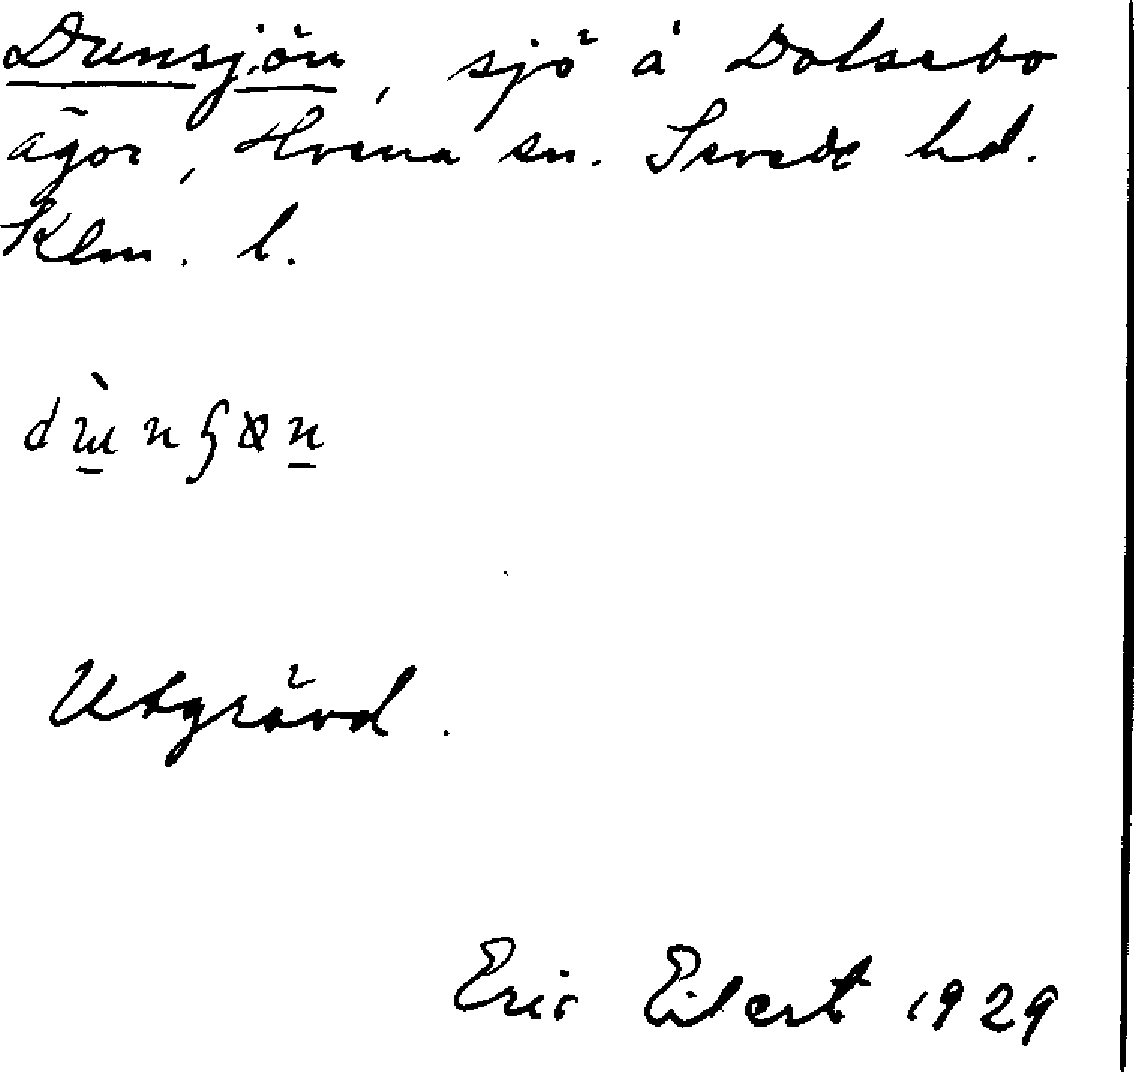 Dunsjön, sjö å Dalsebo
ägor, Hvena sn. Sevede hd.
Klm. l.
Utgrävd.
Eric Eilert 1929